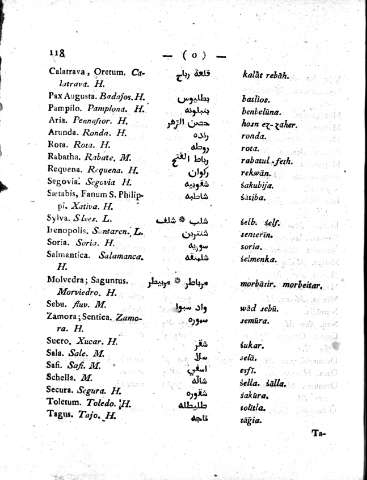 118 — ( o ) —
Calatrava, Oretum. Ca- قلعة رباح kalât rebâh.
latrava. H.
Pax Augusta. Badajos. H. بطليوس
Pampilo. Pamplona. H. بنبلونه benbelûna.
Aria. Pennaflor. H. حصن الزهر hosn ez-zaher.
Arunda. Ronda. H. رنده ronda.
Rota. Rota. H. روطه rota.
Rabatha. Rabate. M. رباط الفتح rabatul-feth.
Requena. Requena. H. ركوان rekwân.
Segovia. Segovia H. شقوبيه śakubija.
Sætabis, Fanum S. Philip- شاطبه śatiba.
pi. Xativa. H.
Sylva. Silves. L. شلب * شلف śelb. śelf.
Irenopolis. Santaren. L. شنترين śenterîn.
Soria. Soria. H. سوريه soria.
Salmantica. Salamanca. شلمنقه śelmenka.
H.
Molvedra; Saguntus. مرباطر * مربيطر morbâsir. morbeitar.
Morviedro. H.
Sebu. fluv. M. واد سبوا wâd sebû.
Zamora; Sentica. Zamo- سموره semûra.
ra. H.
Sucro. Xucar. H. شقر śukar.
Sala. Sale. M. سلا selâ.
Safi. Safi. M. اسفي esfî.
Schella. M. شاله śella. śâlla.
Secura. Segura. H. شقوره śakûra.
Toletum. Toledo. H. طليطله
Tagus. Tajo. H. تاجه tâǵia.
Ta-